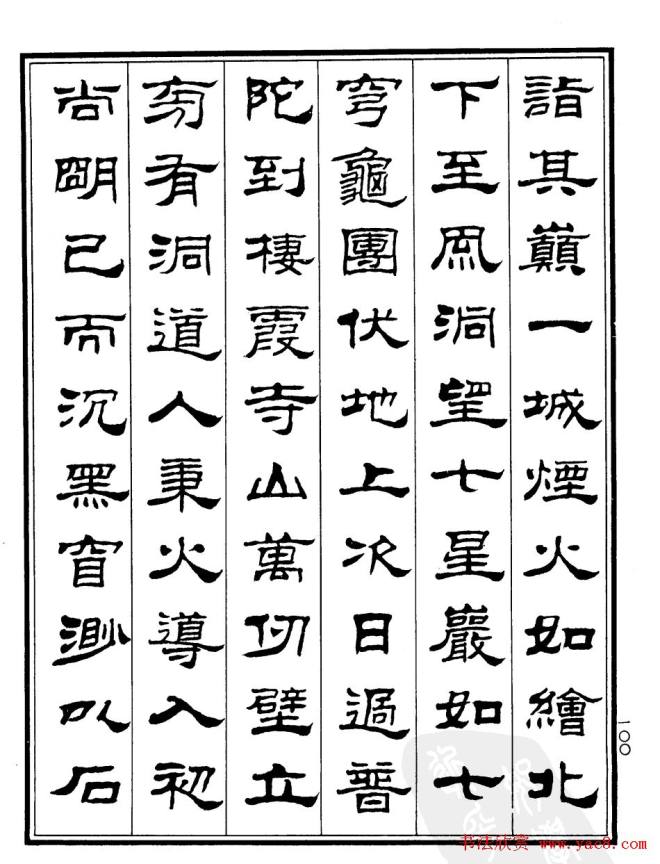 詣其巔一城煙火如繪北
下至風洞望七星巖如七
穹龜團伏地上次日過普
陀到棲霞寺山萬仞壁立
旁有洞道人秉火導入初
尚明已而沉黑窅渺以石
一〇〇
书法欣赏 www.yac8.com